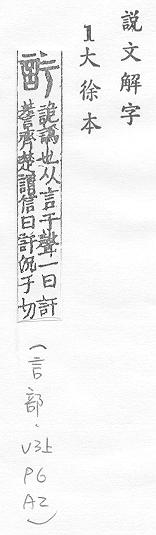 說文解字
1大徐本
訏
詭譌也从言于聲一曰訏
齊楚謂信曰訏況于切
(言部.V3上
P6
A2)